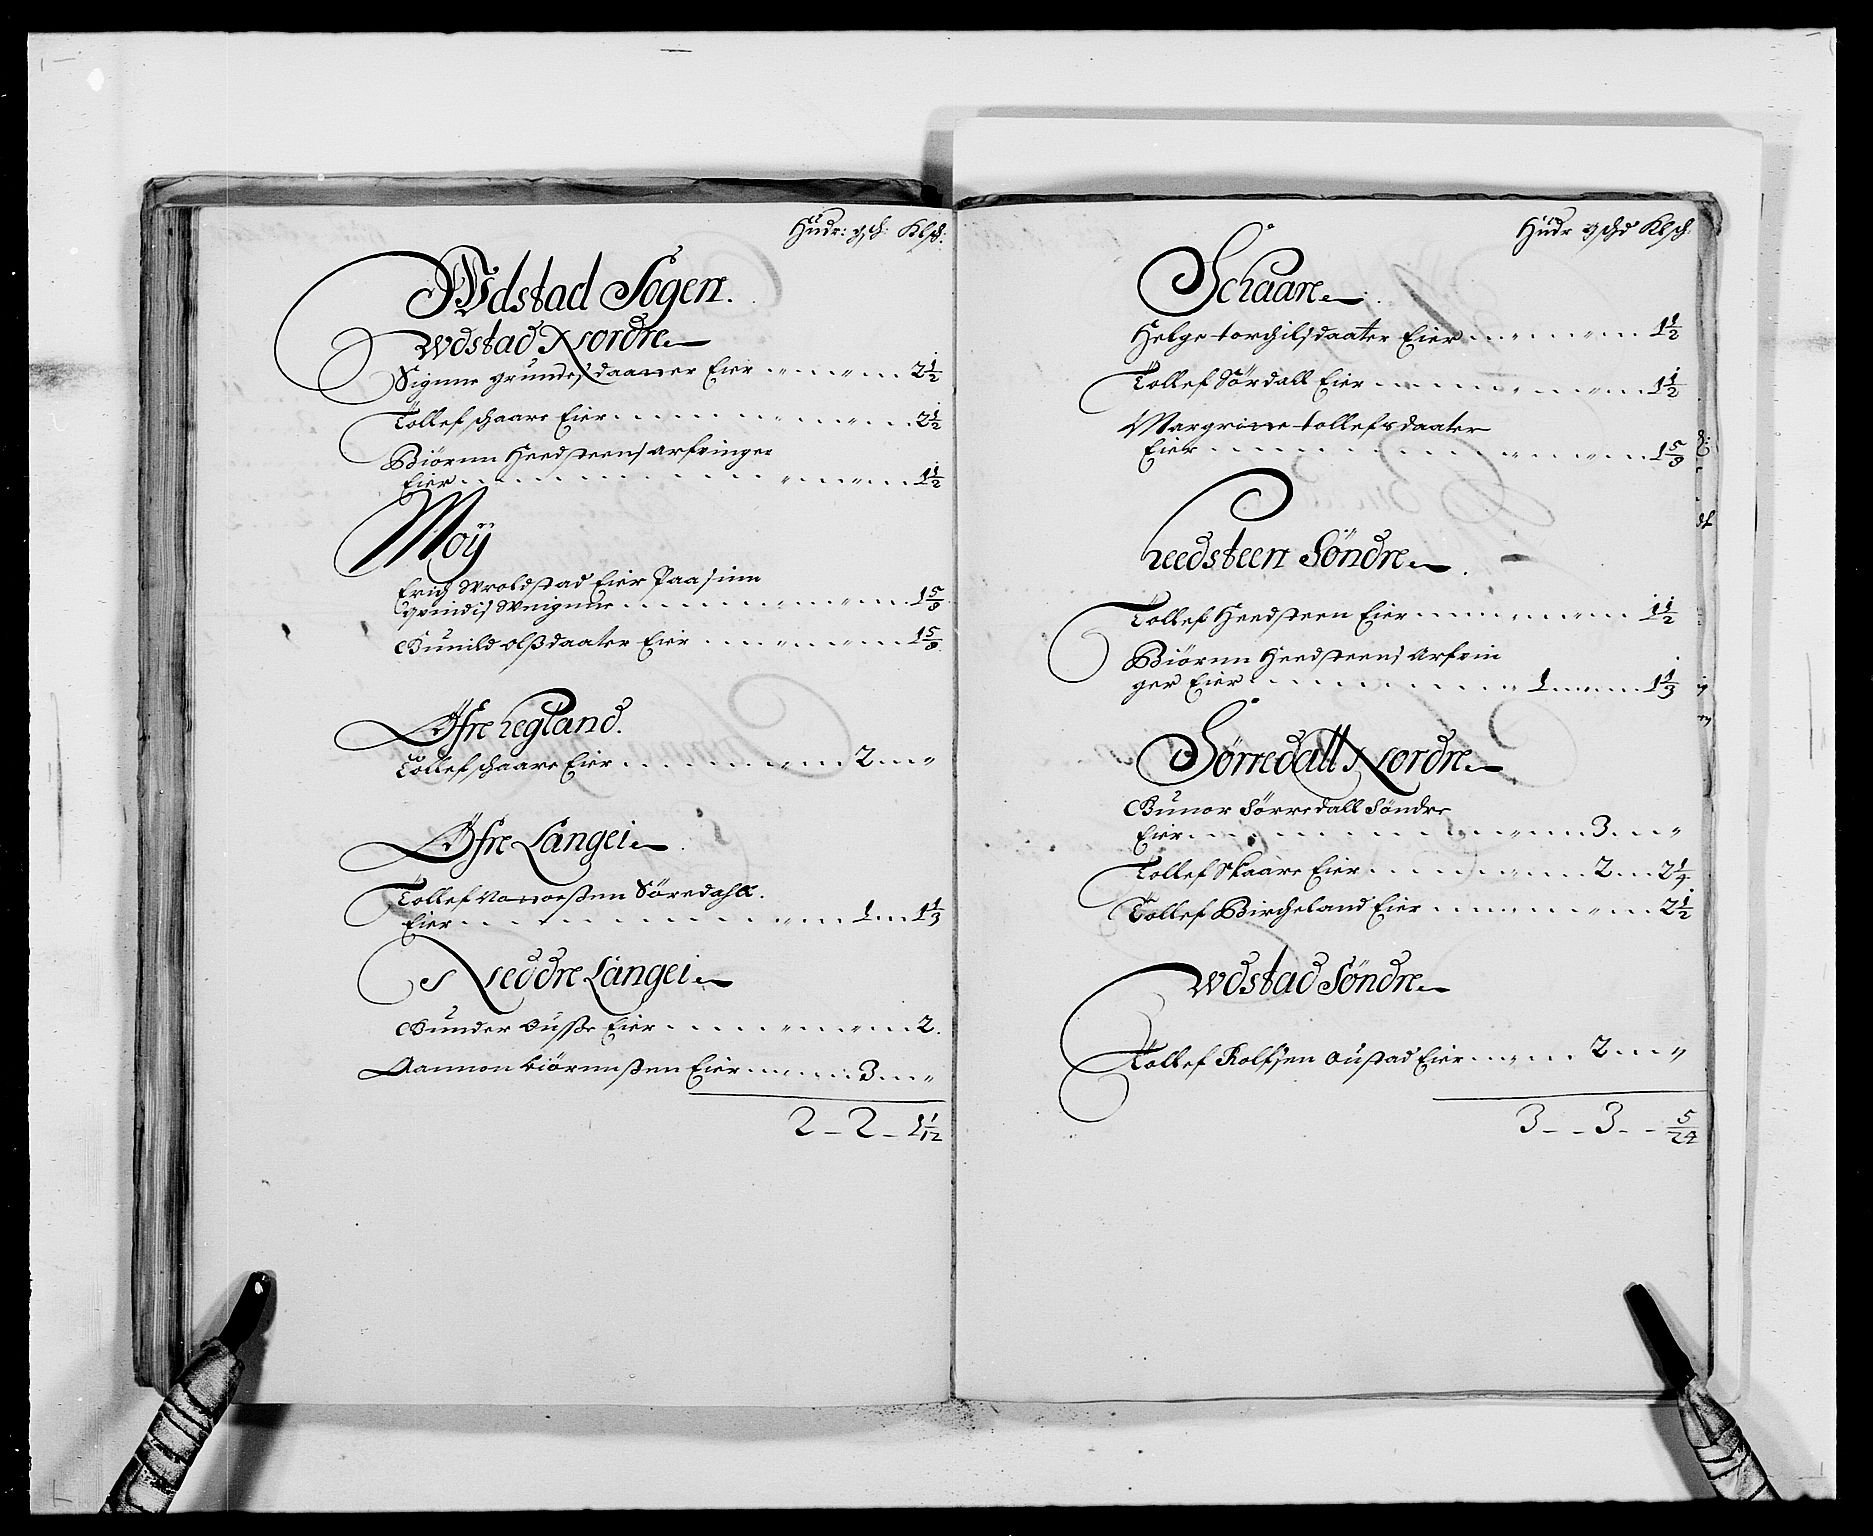 Hudr: gsk: Klsk:
Udstad Sogen.
Udstad Nordre
Signne grundes daatter Eier 2½
Tollef schaare Eier 2½
Biörnn Heedsteens arfvinger
Eier 1½
Moÿ
Erich Wroldstad Eier Paa sinn
1⅝
Gunild olßdaater Eier 1⅝
Öfre hegland.
Tollef schaare Eier 2 „
Öfre Langei
Tollef Söredahll.
Eier 1 1⅓
Neddre Langei
Gunder Eier 2.
Aannon biörnnsen Eier 3 „
2 – 2 – 1 1/12
Hudr gschd Klsch.
Schaare
Helge torchilsdaater Eier 1½
Tollef Sördall Eier 1½
Margrine tollefsdaater
Eier 1⅝
heedsteen Söndre
Tollef Heedsteen Eier 1½
Biörnn Heedsteens Arfvin
ger Eier 1 1⅓
Sörredall Nordre
Gunor Sörredall Söndre
Eier 3 „
Tollef Skaare Eier 2 2¼
Tollef Bircheland Eier 2½
Udstad Söndre
Tollef Rolfsen oustad Eier 2 „
3 – – 3 – – 5/24